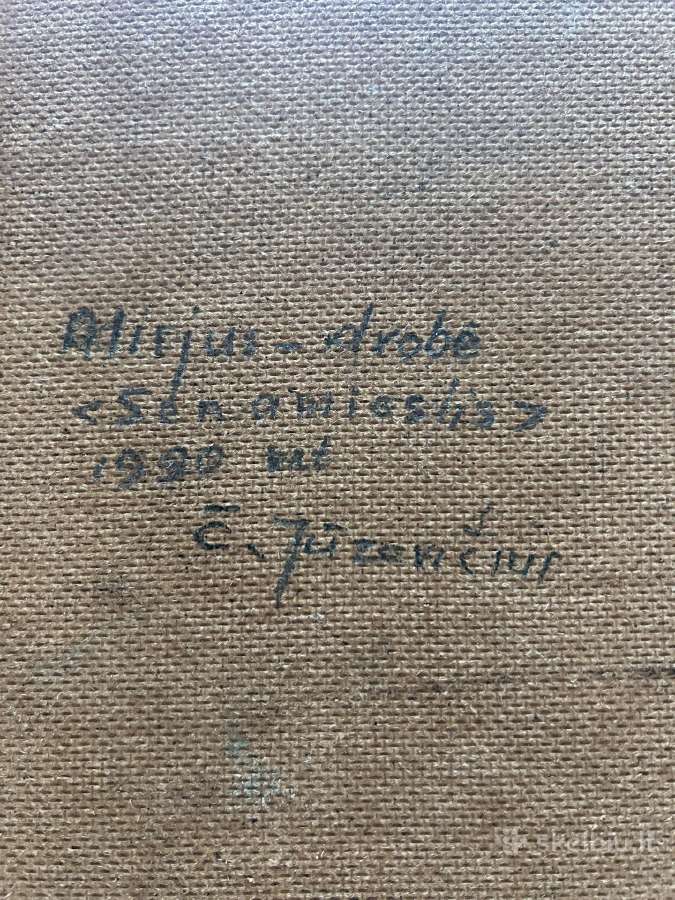 Aliejus - drobė
<Senamiestis>
1990 mt
Č. Jūzenčius
skelbiu.lt